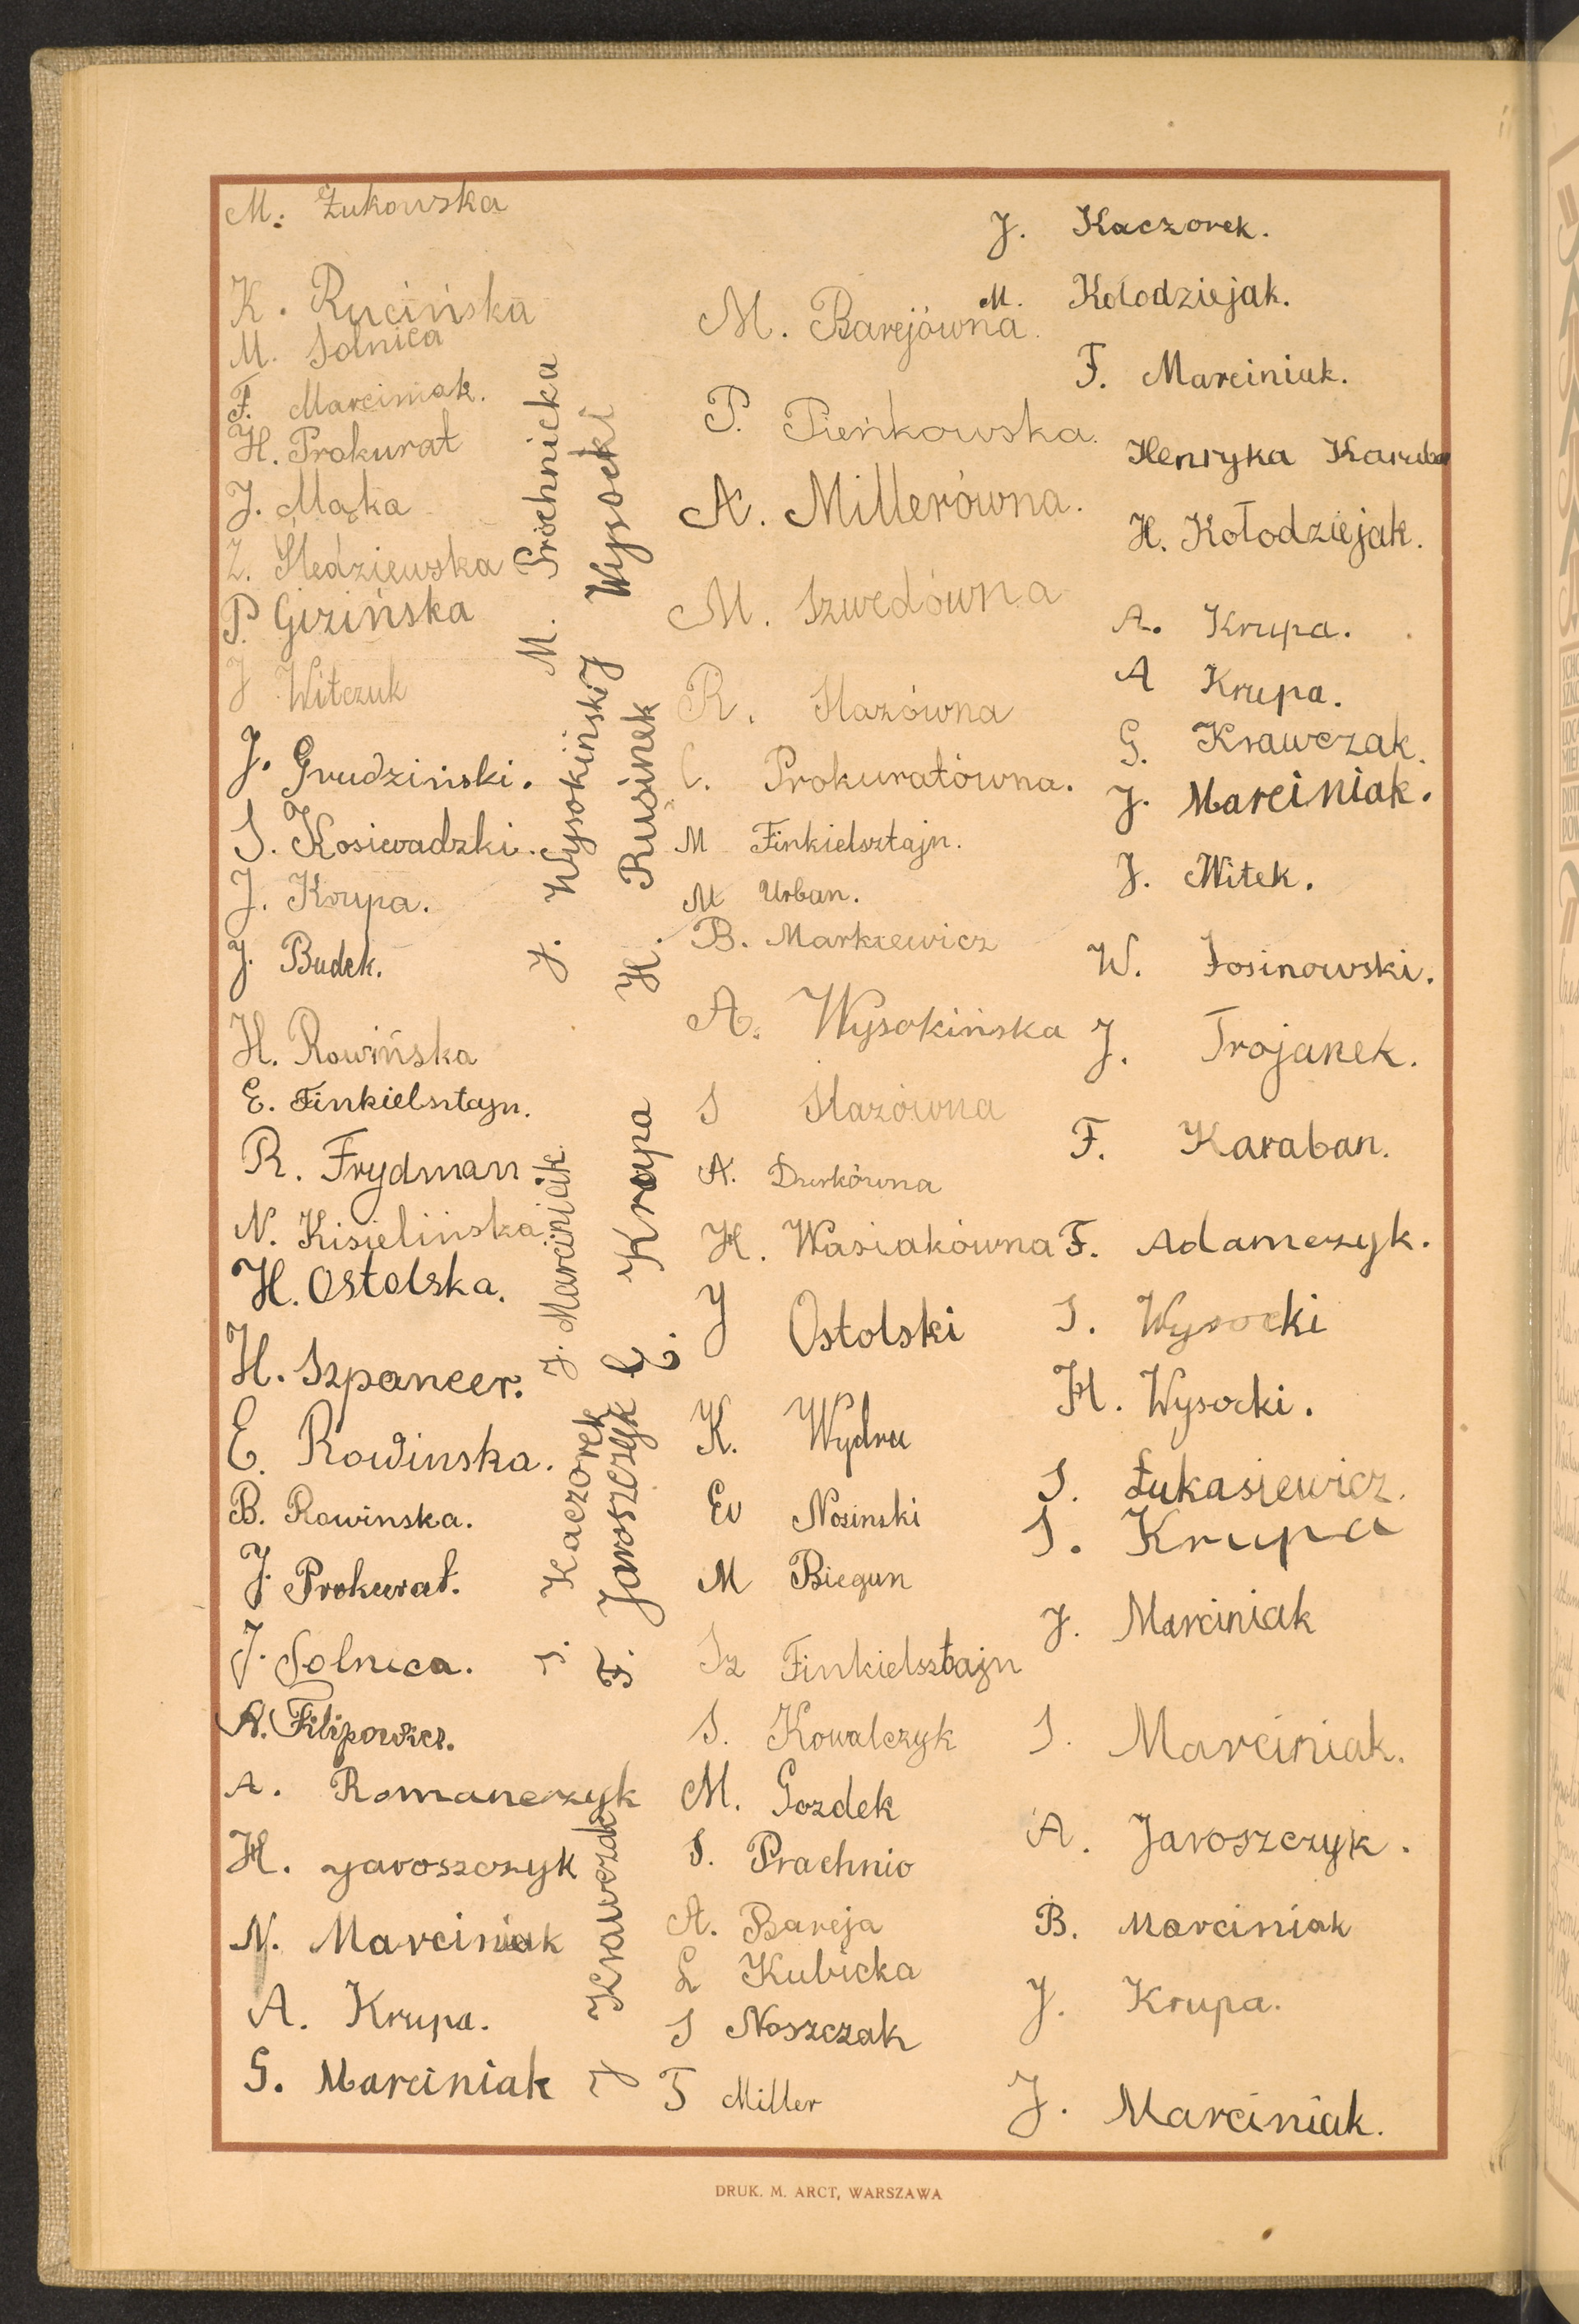 M. Żukowska
K. Rucińska
M. Solnica
F. Marciniak.
H. Prokurat
J. Mąka
Z. Śledziewska
P. Gizińska
J Witczuk
J. Grudziński.
S. Kosieradzki.
J. Krupa.
J. Budek.
H. Rowińska
E. Finkielsztajn.
R. Frydman
N. Kisielińska
H. Ostolska.
H. Szpancer.
E. Rowinska.
B. Rowinska.
J. Prokurat.
J. Solnica.
A. Filipowicz.
A. Romanczyk
H. Jaroszczyk
N. Marciniak
A. Krupa.
G. Marciniak
M. Próchnicka
J. Wysokiński
J. Marciniak
S. Kaczorek
J Krawczak
J Wysocki
H. Rusinek
C. Krupa
F. Jaroszczyk
M. Barejówna.
P. Pieńkowska.
A. Millerówna.
M. Szwedówna
R. Słazówna
C. Prokuratówna.
M Finkielsztajn.
M Urban.
B. Markiewicz
A. Wysokińska
S Słazówna
A. Durkówna
H. Wasiakówna
J Ostolski
K. Wydra
Ed Nosinski
M Biegun
Sz Finkielsztajn
S. Kowalczyk
M. Gozdek
S. Prachnio
A. Bareja
L Kubicka
S Noszczak
T Miller
J. Kaczorek.
M. Kołodziejak.
F. Marciniak.
Henryka Karaban
H. Kołodziejak.
A. Krupa.
A Krupa.
G. Krawczak.
J. Marciniak.
J. Witek.
W. Łosinowski.
J. Trojanek.
F. Karaban.
F. Adamczyk.
S. Wysocki
H. Wysocki.
S. Łukasiewicz.
S. Krupa
J. Marciniak
S. Marciniak.
A. Jaroszczyk.
B. Marciniak
J. Krupa.
J. Marciniak.
DRUK. M. ARCT, WARSZAWA